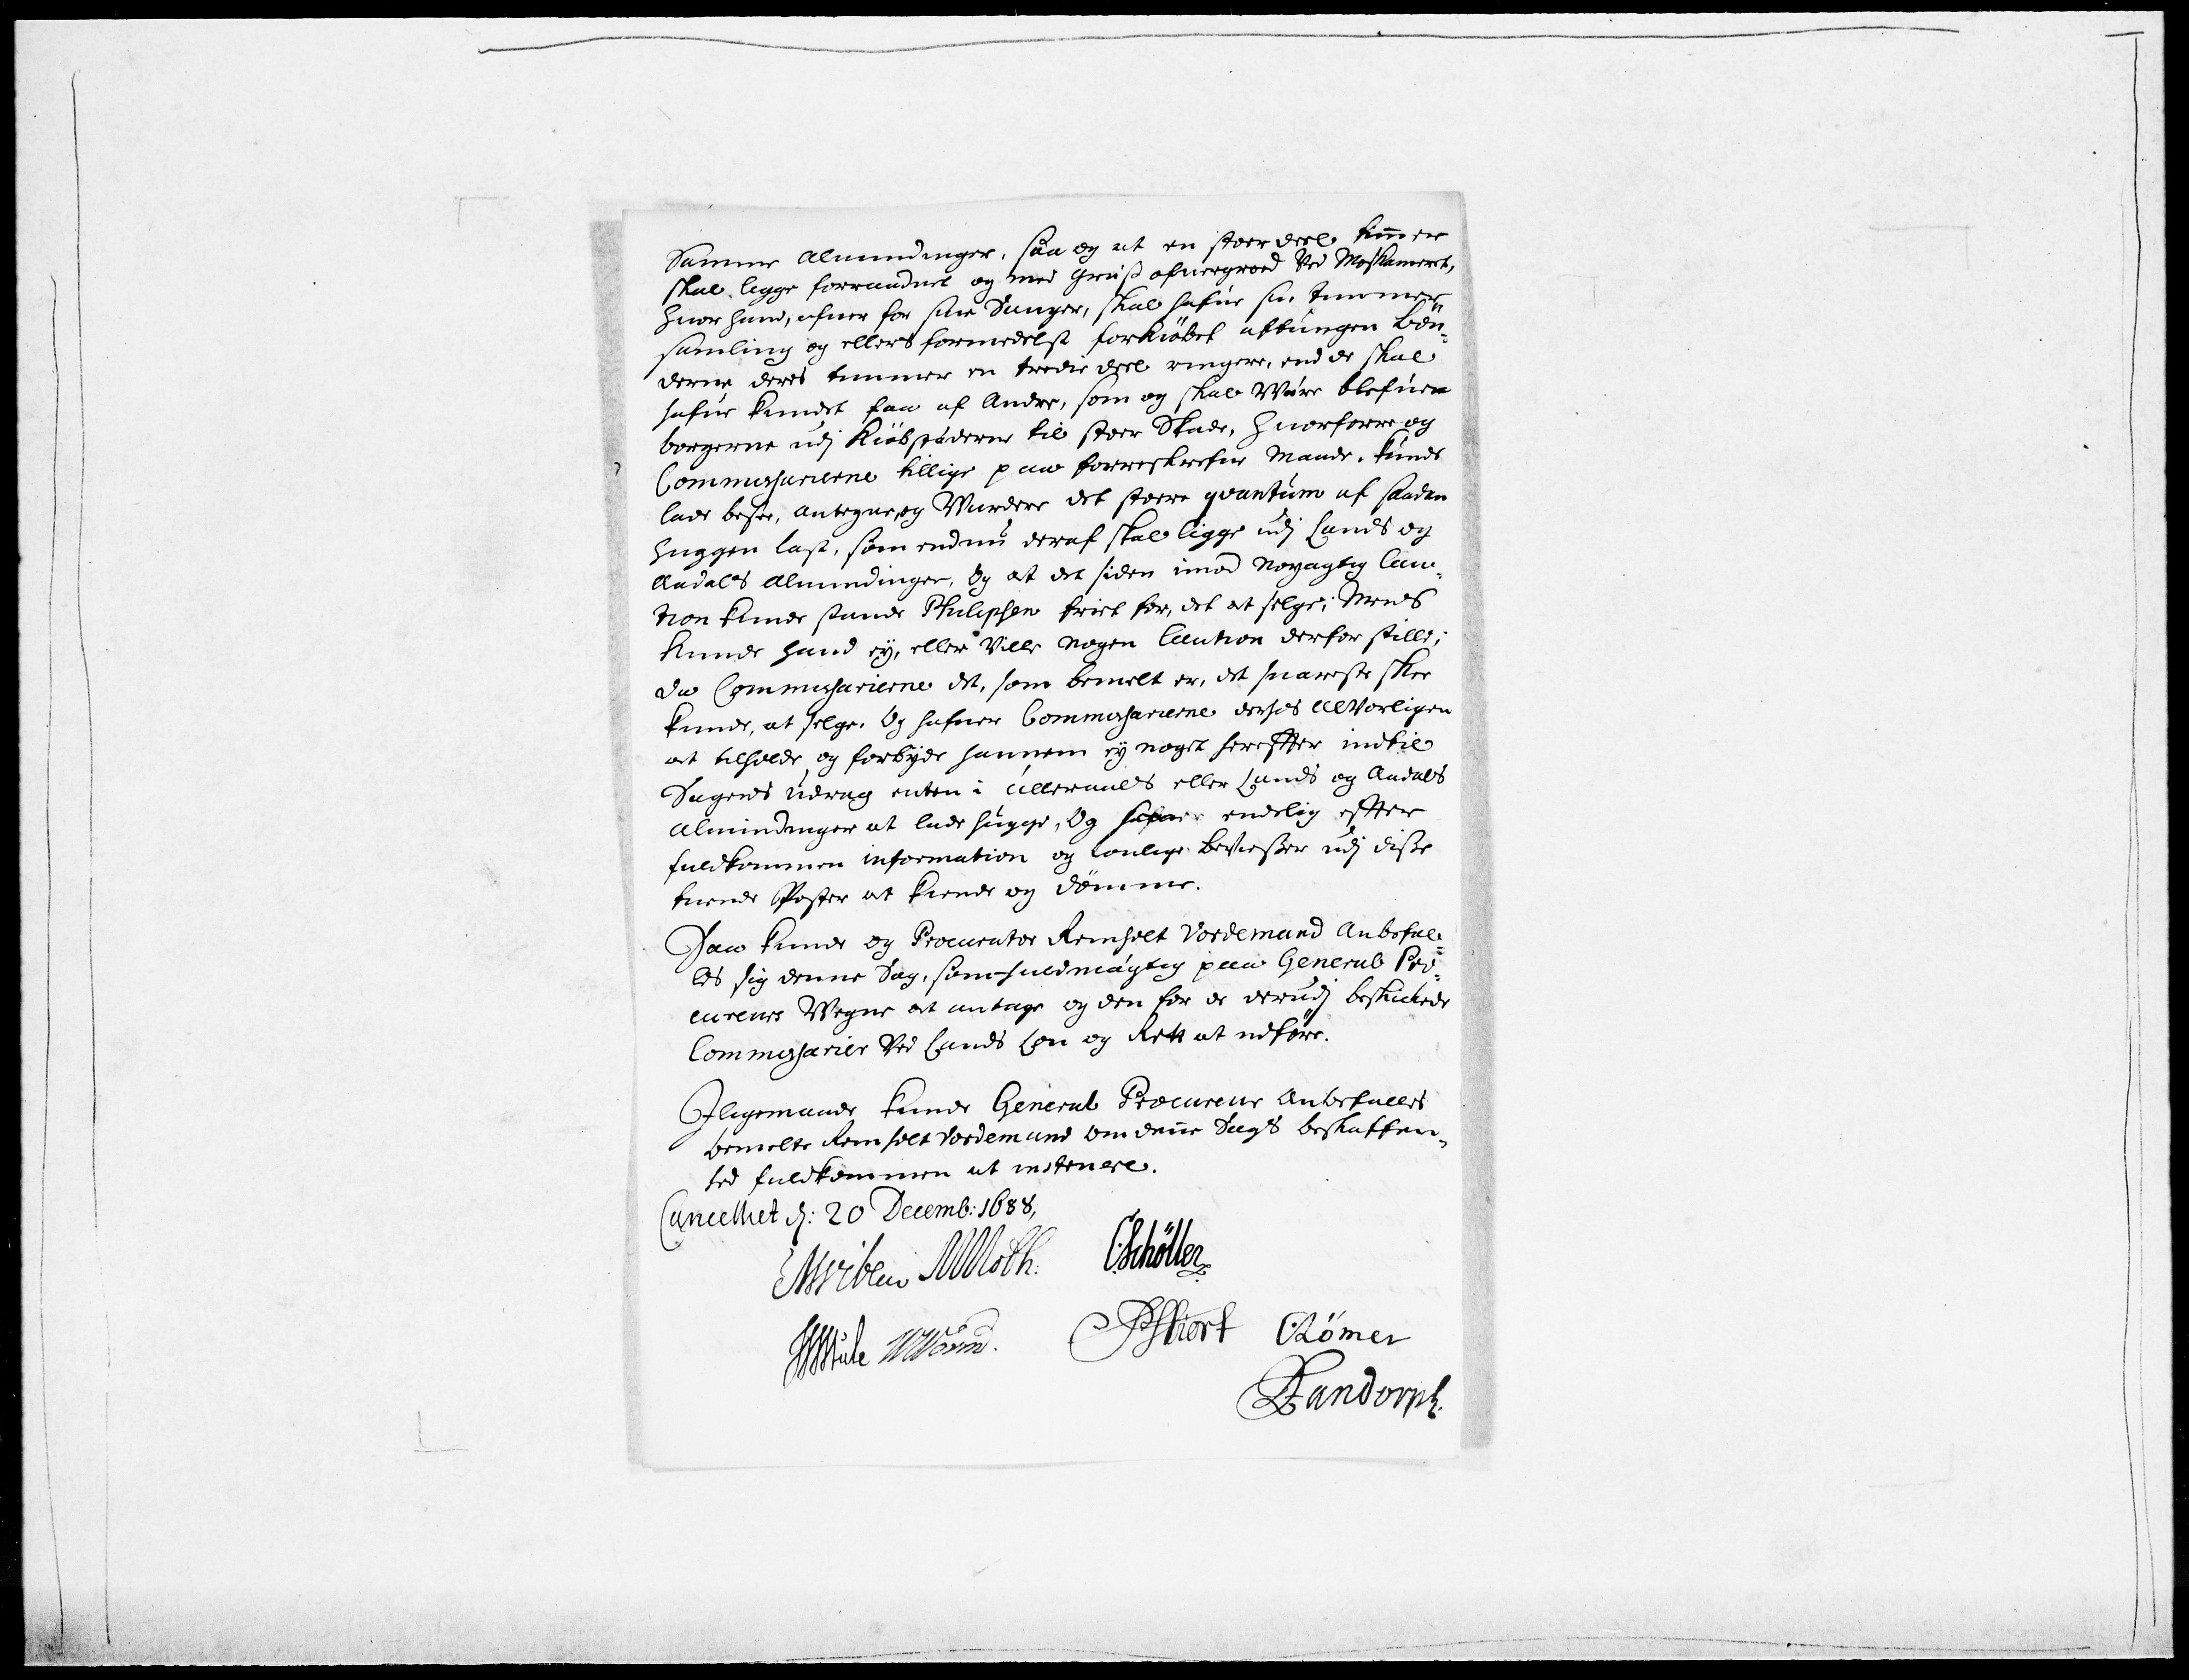 Samme Almindinger, saa og at en stoer deel timmer
skal ligge forraadnet og med Gruss ofuergroed ved Moskameret,
huor hand, ofuer for sine Sauger, skal hafue sin timmer
samling og ellers formedelst forkiöbet aftuungen Bøn-
derne deris timmer en tredie deel ringere, end de skal
hafue kundet faa af Andre, som og skal Være blefuen
borgerne udj Kiöbstæderne til stoer Skade, Huorforre og
Commissarierne tillige paa forreskrefne Maade, kunde
lade besee, antegne, og Wurdere det stoere qvantum af saadan
huggen last, som endnu deraf skal ligge udj Lands og
Aadals Almindinger, Og at det siden imod Nøyagtig Cau-
tion kunde stande Philipsen friet for, det at selge; Mens
kunde hand ej, eller Ville nogen Caution derfor stille;
da Commissarierne det, som bemelt er, det snareste skee
kunde, at selge. Og hafuer Commissarierne derhos Alvorligen
at tilholde og forbyde hannem ej noget herefter indtil
Sagens Udrag enten i Ulleraals eller Lands og Aadals
Almindinger at lade hugge, Og hafuer endelig efter
fuldkommen information og lovlige beviisser udj disse
tuende Poster at kiende og dömme.
Saa kunde og Procurator Reinholt Vordemand Anbefal-
les sig denne Sag, som fuldmægtig paa General Pro-
cureurs Wegne at antage og den for de derudj beskickede
Commissarier Ved Lands Lov og Rett at udføre.
Jligemaade kunde General Procureur Anbefalles
bemelte Reinholt Vordemand om denne Sags beskaffen-
hed fuldkommen at instruere.
Cancelliet d: 20 Decemb: 1688,
MViben MMoth: CSchöller
WWorm. PSkiort CRömer
Landorph.